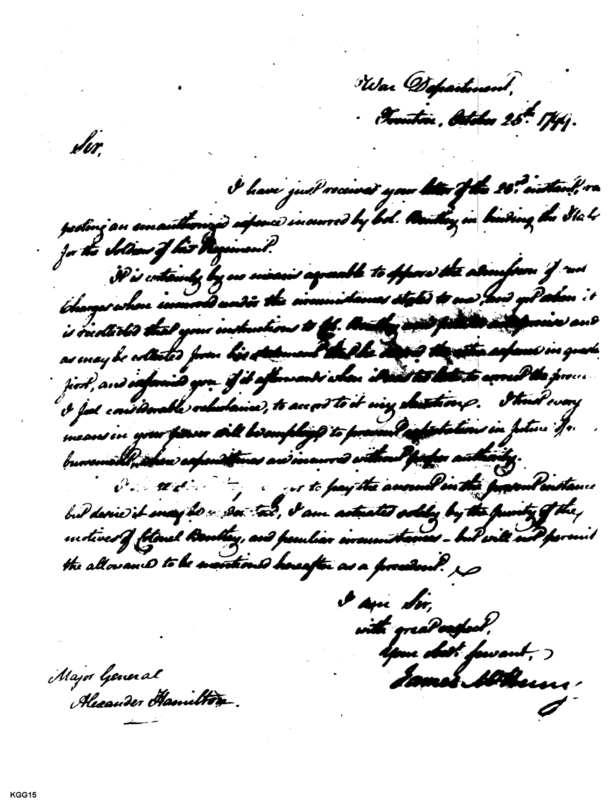 War Department,
Trenton, October 25th. 1799.
Sir,
I have just received your letter of the 23rd. instant, res
pecting an unauthorized expence incurred by Col. Bentley in binding the Hats
for the Soldiers of his Regiment.
It is certainly by no means agreable to oppose the admission of
Charges when incurred under the circumstances stated to me, and yet when it
is recollected that your instructions to Col. Bentley were precise and
as may be collected from his statement that he the extra expence in
first, and informed you of it afterwards when it was too late to correct the
I feel considerable reluctance, to accord to it my . I trust every
means in your power will be employed to prevent expectations in future of
bursement, when expenditures are incurred without proper authority.
to pay the amount in the present instance
but desire it may be , I am actuated solely by the purity of the
motives of Colonel Bentley, and peculiar circumstances - but will not permit
the allowance to be mentioned hereafter as a precedent.
I am Sir,
with great respect,
Your obedt. servant,
James McHenry
Major General
Alexander Hamilton.
KGG15